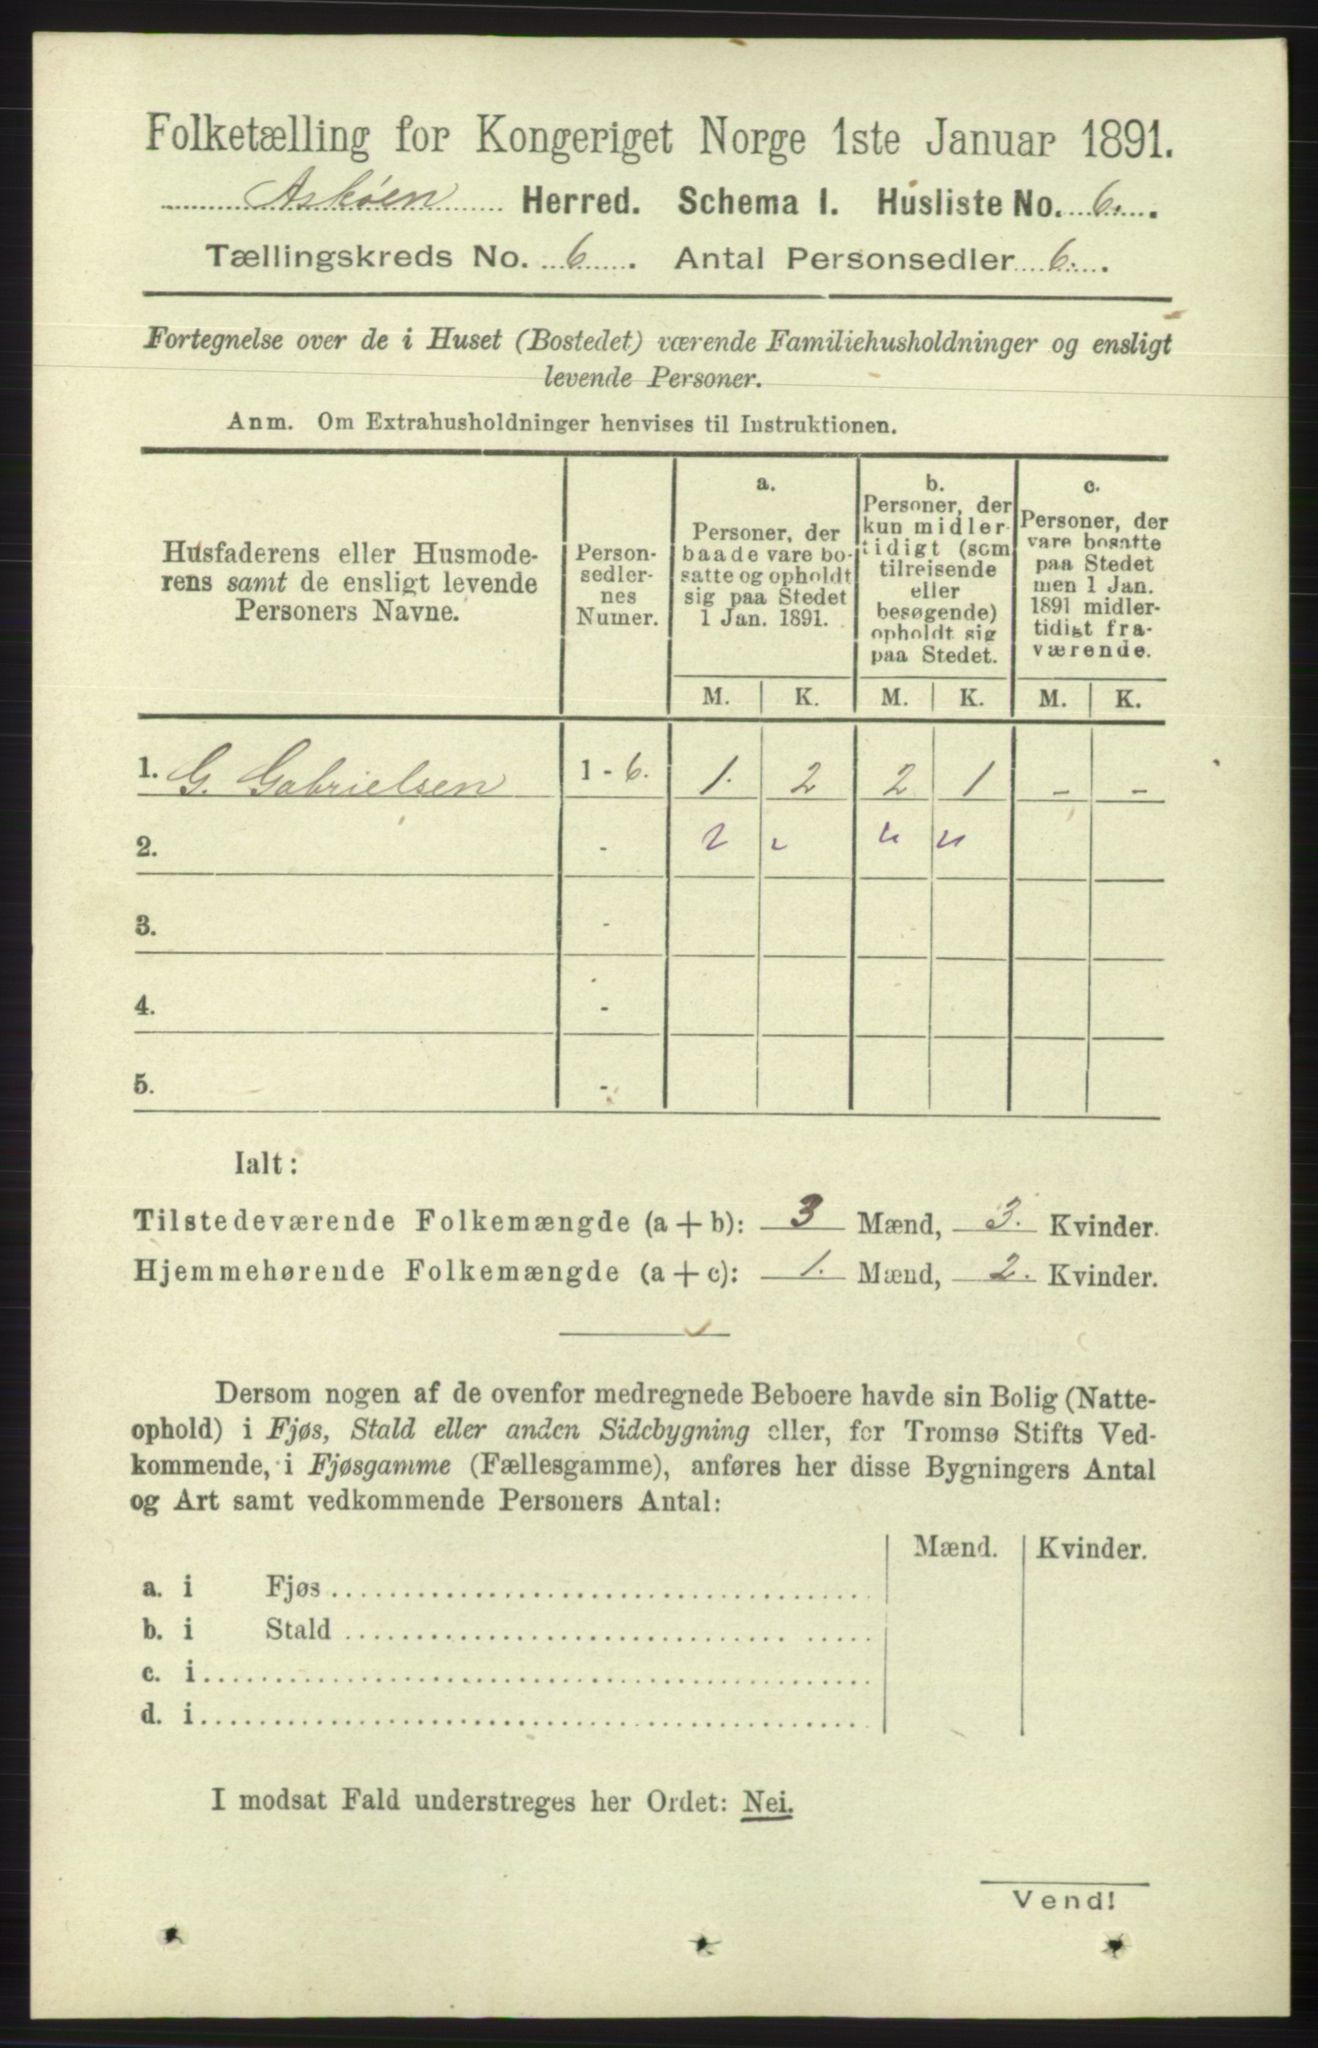 Folketælling for Kongeriget Norge 1ste Januar 1891.
Askøen Herred. Schema 1. Husliste No. 6.
Tællingskreds No. 6. Antal Personsedler 6.
Fortegnelse over de i Huset (Bostedet) værende Familiehusholdninger og ensligt
levende Personer.
Anm. Om Extrahusholdninger henvises til Instruktionen.
Husfaderens eller Husmode-
rens samt de ensligt levende
Personers Navne.
Person-
sedler-
nes
Numer.
a.
Personer, der
baade vare bo-
satte og opholdt
sig paa Stedet
1 Jan. 1891.
b.
Personer, der
kun midler-
tidigt (som
tilreisende
eller
besøgende)
opholdt sig
paa Stedet.
c.
Personer, der
vare bosatte
paa Stedet
men 1 Jan.
1891 midler-
tidigt fra-
værende.
M. K. M. K. M. K.
1. G. Gabrielsen 1 - 6. 1. 2 2 1 - -
2. -
3. -
4. -
5. -
Ialt:
Tilstedeværende Folkemængde (a + b): 3 Mænd, 3. Kvinder.
Hjemmehørende Folkemængde (a + c): 1. Mænd, 2. Kvinder.
Dersom nogen af de ovenfor medregnede Beboere havde sin Bolig (Natte-
ophold) i Fjøs, Stald eller anden Sidebygning eller, for Tromsø Stifts Ved-
kommende, i Fjøsgamme (Fællesgamme), anføres her disse Bygningers Antal
og Art samt vedkommende Personers Antal:
Mænd. Kvinder.
a. i Fjøs
b. i Stald
c. i
d. i
I modsat Fald understreges her Ordet: Nei.
Vend!